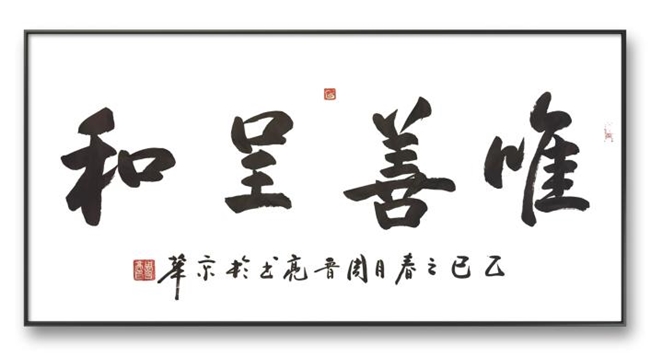 唯善呈和
乙巳之春月周晋亮书於京華